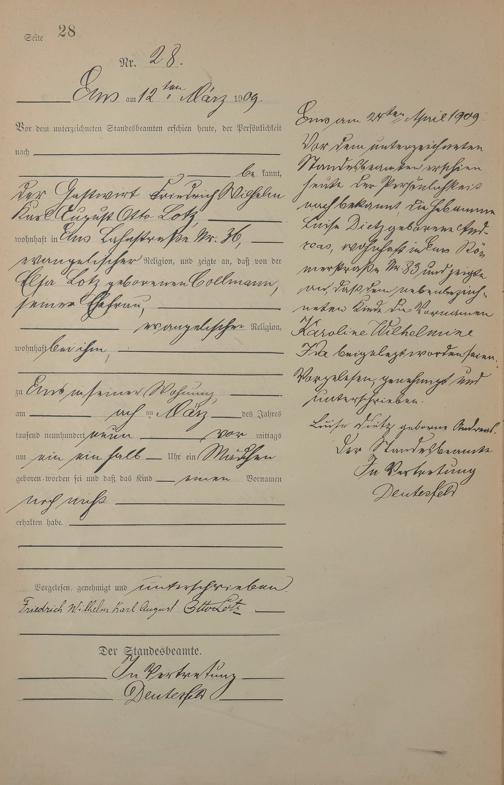 Seite 28
Nr. 28.
Ems am 12ten März 1909.
Vor dem unterzeichneten Standesbeamten erschien heute, der Persönlichkeit
nach
be kannt,
der Gastwirt Friedrich Wilhelm
Karl August Otto Lotz,
wohnhaft in Ems Lahnstraße Nr. 36,
evangelischer Religion, und zeigte an, daß von der
Elsa Lotz geborenen Collmann,
seiner Ehefrau,
evangelischer Religion,
wohnhaft bei ihm,
zu Ems in seiner Wohnung
am acht ten März des Jahres
tausend neunhundert neun vor mittags
um ein einhalb Uhr ein Mädchen
geboren worden sei und daß das Kind einen Vornamen
noch nicht
erhalten habe.
Vorgelesen, genehmigt und unterschrieben
Friedrich Wilhelm Karl August Otto Lotz
Der Standesbeamte.
In Vertretung
Deutesfeld
Ems am 24ten April 1909
Vor dem unterzeichneten
Standesbeamten erschien
heute der Persönlichkeit
nach bekannt, die Hebamme
Luise Dietz geborene And-
reas, wohnhaft in Ems Rö-
merstraße Nr 83 und zeigte
an, daß dem nebenbezeich-
neten Kinde die Vornamen
Karoline Wilhelmine
Ida beigelegt worden seien.
Vorgelesen, genehmigt und
unterschrieben.
Luise Dietz geborne Andreas.
Der Standesbeamte
In Vertretung
Deutesfeld